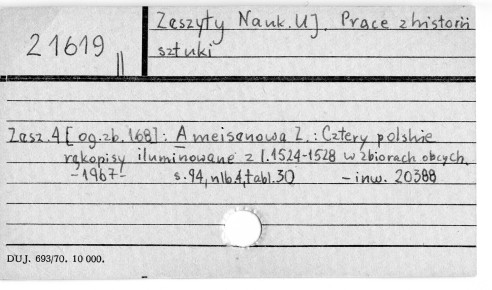 Zeszyty Nauk. UJ. Prace z historii
21619 || sztuki
Zesz. 4 [og. zb. 168]: Ameisenowa Z.: Cztery polskie
rękopisy iluminowane z l. 1524-1528 w zbiorach obcych.
-1967- s. 94, nlb. 4, tabl. 30 - inw. 20388
DUJ. 693/70. 10 000.